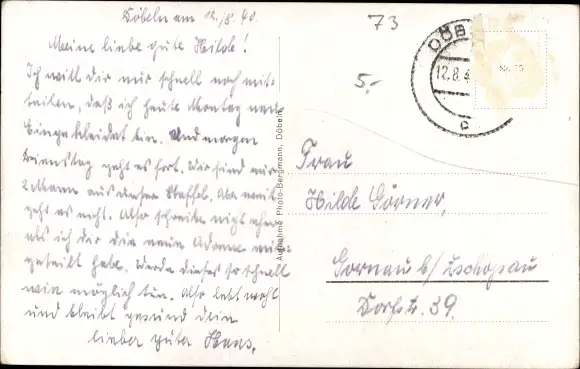 Döbeln am 12./8. 40
73
Meine liebe gute Hilde!
Ich will dir nur schnell noch mit-
teilen, daß ich heute Montag neu
Eingekleidet bin. Und morgen
Dienstag geht es fort. Wir sind nur
2 Mann aus dieser Staffel. Also weit
geht es nicht. Also schreibe nicht eher
als ich dir die neue Adresse mit-
geteilt habe. Werde dieses so schnell
wie möglich tun. Also lebt wohl
und bleibt gesund dein
lieber guter Hans.
5.-
12.8.4
Aufnahme Photo-Bergmann, Döbeln
Frau
Hilde Görner,
Gornau b/ Zschopau
Dorfstr. 39.